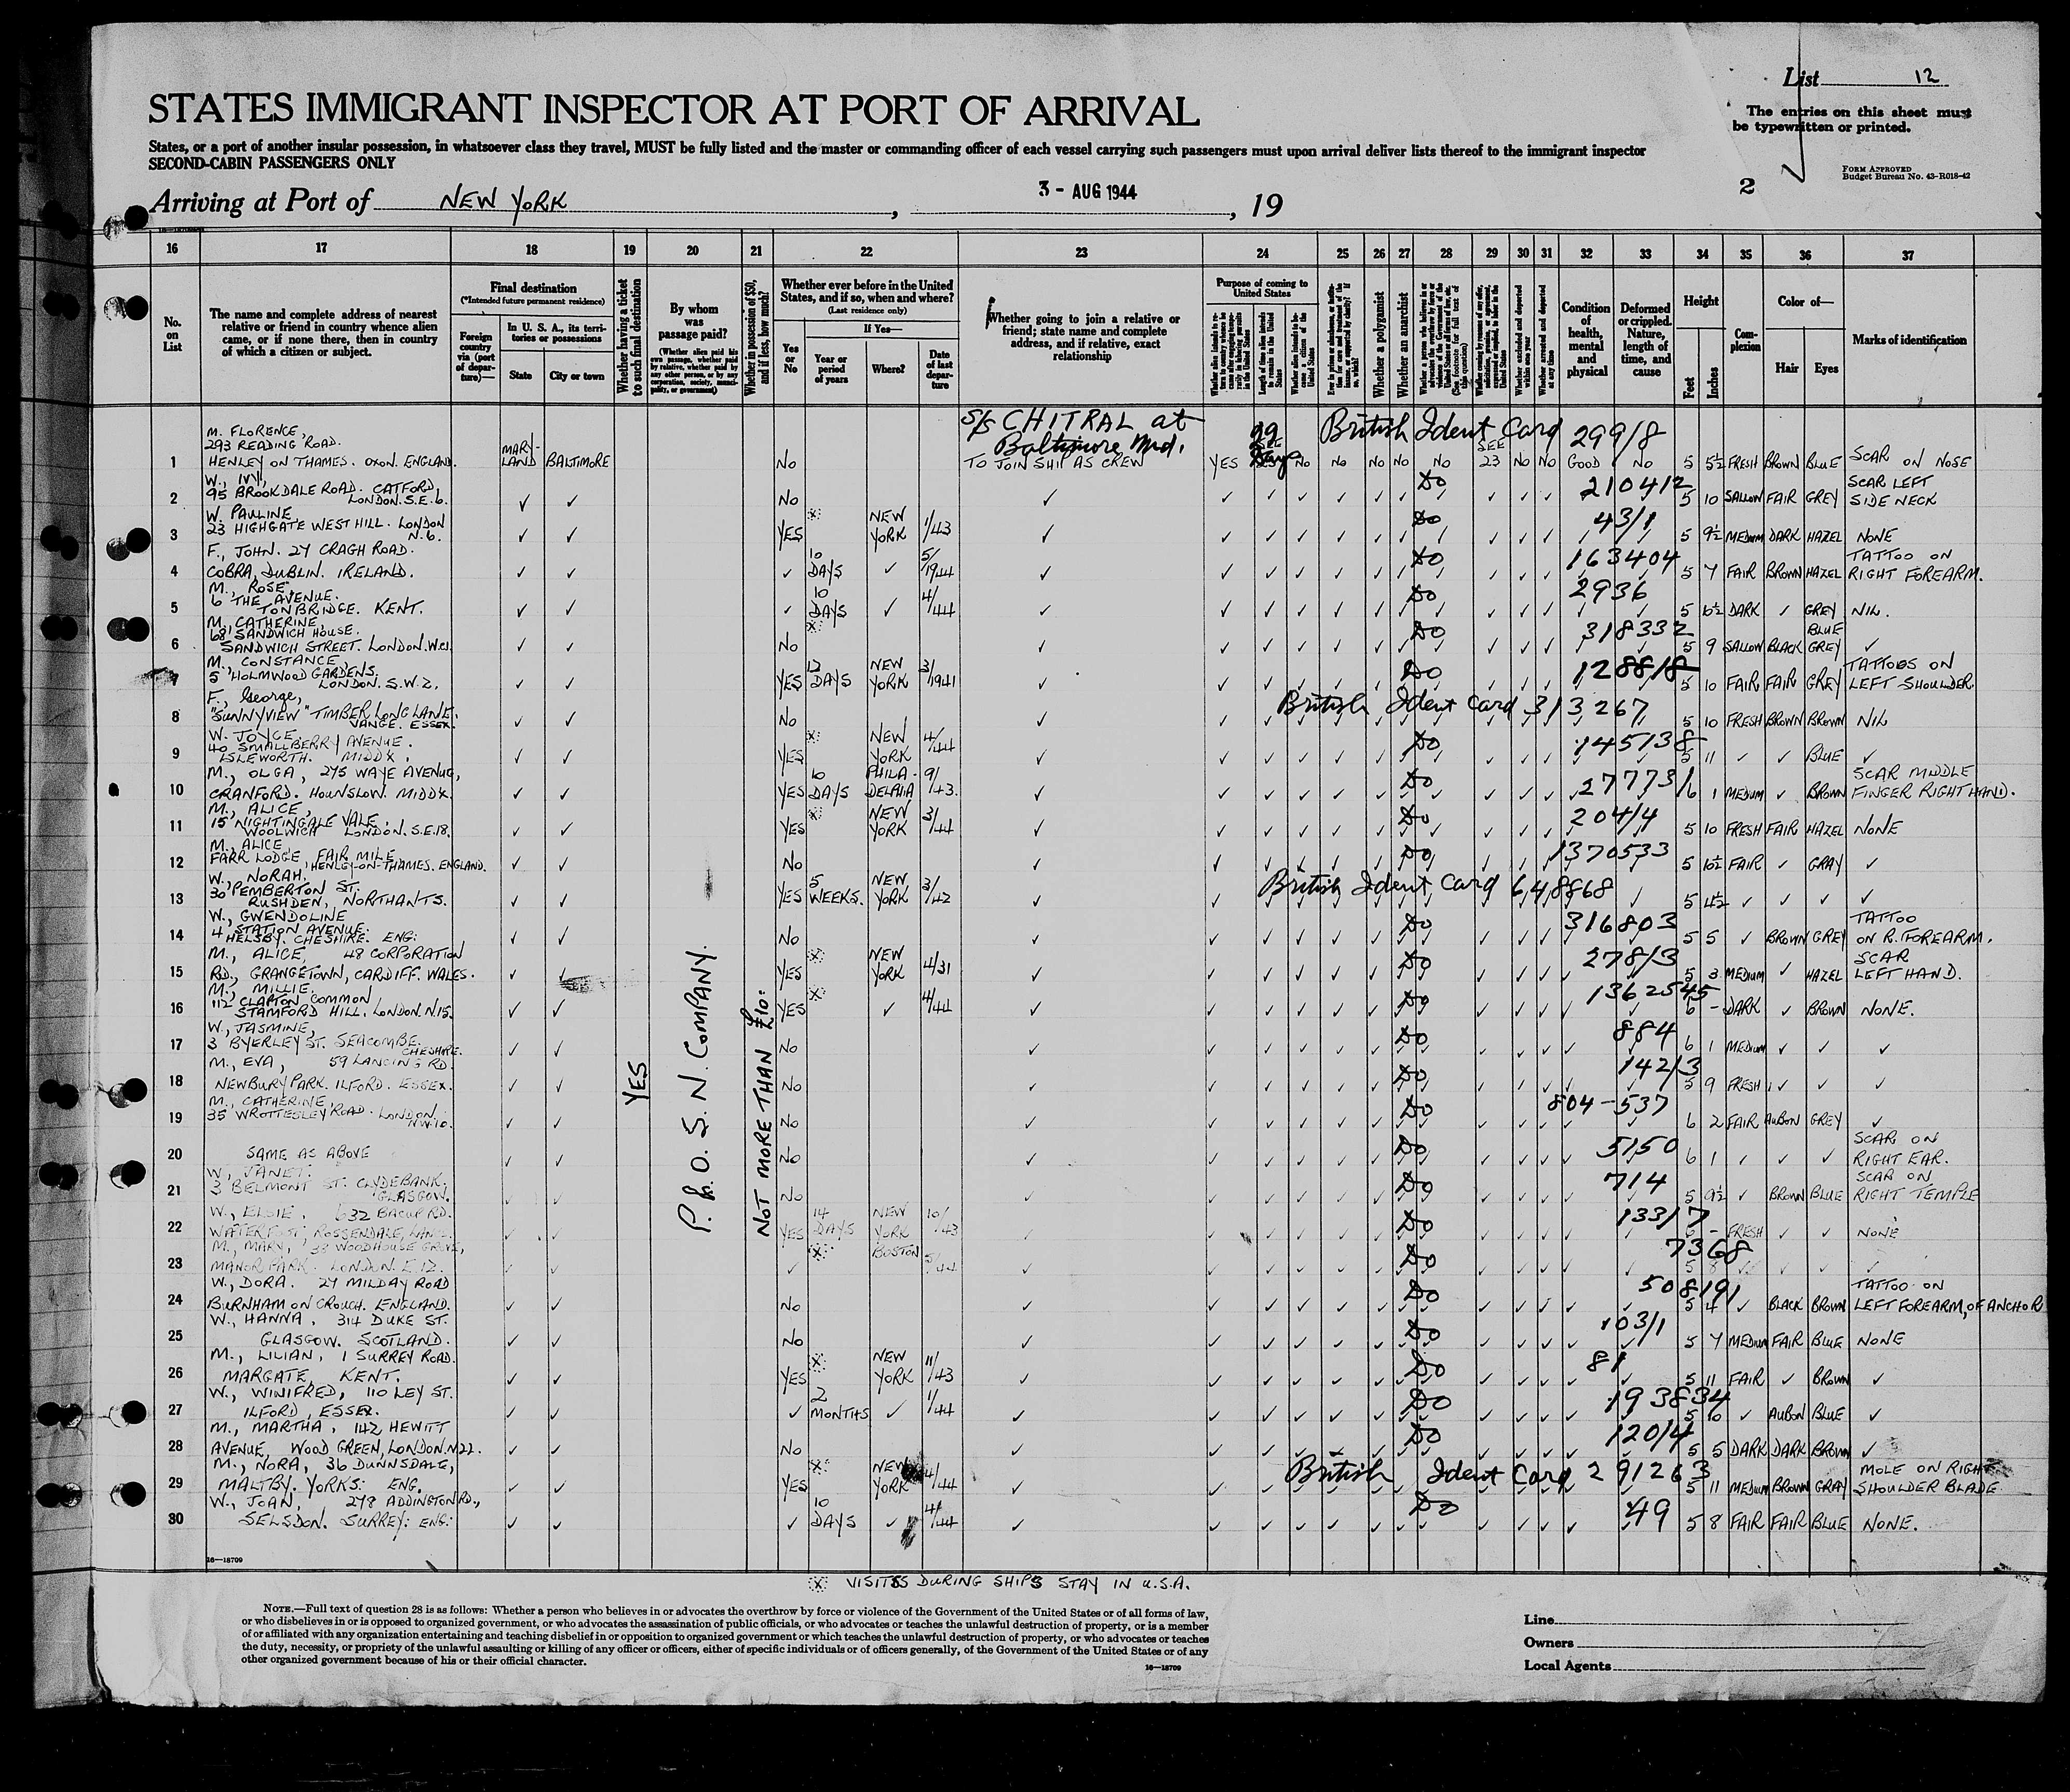 List 12
STATES IMMIGRANT INSPECTOR AT PORT OF ARRIVAL
The entries on this sheet must
be typewritten or printed.
States, or a port of another insular possession, in whatsoever class they travel, MUST be fully listed and the master or commanding officer of each vessel carrying such passengers must upon arrival deliver lists thereof to the immigrant inspector
SECOND-CABIN PASSENGERS ONLY
FORM APPROVED
Budget Bureau No. 43-R018-42
2
Arriving at Port of NEW YORK, 3 - AUG 1944, 19
16 17 18 19 20 21 22 23 24 25 26 27 28 29 30 31 32 33 34 35 36 37
No. on List
The name and complete address of nearest relative or friend in country whence alien came, or if none there, then in country of which a citizen or subject.
Final destination
(*Intended future permanent residence)
Foreign country via (port of departure)—
In U. S. A., its territories or possessions
State
City or town
Whether having a ticket to such final destination
By whom was passage paid?
(Whether alien paid his own passage, whether paid by relative, whether paid by any other person, or by any corporation, society, municipality, or government)
Whether in possession of $50, and if less, how much?
Whether ever before in the United States, and if so, when and where?
(Last residence only)
Yes or No
If Yes—
Year or period of years
Where?
Date of last departure
Whether going to join a relative or friend; state name and complete address, and if relative, exact relationship
Purpose of coming to United States
Whether a polygamist
Whether an anarchist
Whether excluded and deported within one year
Whether arrested and deported at any time
Condition of health, mental and physical
Deformed or crippled. Nature, length of time, and cause
Height
Feet
Inches
Complexion
Color of—
Hair
Eyes
Marks of identification
S/S CHITRAL at
Baltimore Md.
29 Days
British Ident Card 299/8
M. FLORENCE,
293 READING ROAD.
1 HENLEY ON THAMES. OXON. ENGLAND. MARYLAND BALTIMORE NO TO JOIN SHIP AS CREW YES No No No No No SEE 23 No No GOOD No 5 5½ FRESH BROWN BLUE SCAR ON NOSE
W., IVY,
2 95 BROOKDALE ROAD. CATFORD, LONDON. S.E.6. ✓ ✓ No ✓ Do 210412 5 10 SALLOW FAIR GREY SCAR LEFT SIDE NECK
W. PAULINE
3 23 HIGHGATE WEST HILL. LONDON N.6. ✓ ✓ YES NEW YORK 1/43 ✓ Do 43/1 5 9½ MEDIUM DARK HAZEL NONE
F., JOHN. 27 CRAGH ROAD.
4 COBRA, DUBLIN. IRELAND. ✓ ✓ ✓ 10 DAYS ✓ 5/1944 ✓ Do 163404 5 7 FAIR BROWN HAZEL TATTOO ON RIGHT FOREARM.
M., ROSE.
5 6 THE AVENUE. TONBRIDGE. KENT. ✓ ✓ ✓ 10 DAYS ✓ 4/44 ✓ Do 2936 5 10½ DARK ✓ GREY NIL.
M., CATHERINE,
6 68 SANDWICH HOUSE. SANDWICH STREET. LONDON. W.C.1. ✓ ✓ No ✓ Do 318332 5 9 SALLOW BLACK BLUE GREY ✓
M., CONSTANCE,
7 5 HOLMWOOD GARDENS. LONDON. S.W.2. ✓ ✓ YES 12 DAYS NEW YORK 3/1941 ✓ Do 128818 5 10 FAIR FAIR GREY TATTOES ON LEFT SHOULDER
F., George,
8 "SUNNYVIEW" TIMBERLONG LANE. VANGE. ESSEX. ✓ ✓ No ✓ British Ident Card 313267 5 10 FRESH BROWN BROWN NIL
W. JOYCE,
9 40 SMALLBERRY AVENUE. ISLEWORTH. MIDDX. ✓ ✓ YES NEW YORK 4/44 ✓ Do 145138 5 11 ✓ ✓ BLUE ✓
M., OLGA, 275 WAYE AVENUE,
10 CRANFORD. HOUNSLOW. MIDDX. ✓ ✓ YES 10 DAYS PHILADELPHIA 9/43. ✓ Do 27773/ 6 1 MEDIUM ✓ BROWN SCAR MIDDLE FINGER RIGHT HAND.
M., ALICE,
11 15 NIGHTINGALE VALE. WOOLWICH LONDON. S.E.18. ✓ ✓ YES NEW YORK 3/44 ✓ Do 204/4 5 10 FRESH FAIR HAZEL NONE
M., ALICE,
12 FARR LODGE, FAIR MILE, HENLEY-ON-THAMES. ENGLAND. ✓ ✓ No ✓ Do 1370533 5 10½ FAIR ✓ GRAY ✓
W., NORAH,
13 30 PEMBERTON ST. RUSHDEN, NORTHANTS. ✓ ✓ YES 5 WEEKS. NEW YORK 3/42 ✓ British Ident Card 648868 5 4½ ✓ ✓ ✓ ✓
W., GWENDOLINE
14 4 STATION AVENUE. HELSBY. CHESHIRE. ENG: ✓ ✓ No ✓ Do 316803 5 5 ✓ BROWN GREY TATTOO ON R. FOREARM.
M., ALICE, 48 CORPORATION
15 RD., GRANGETOWN, CARDIFF. WALES. ✓ ✓ YES NEW YORK 4/31 ✓ Do 278/3 5 3 MEDIUM ✓ HAZEL SCAR LEFT HAND.
M., MILLIE.
16 112 CLAPTON COMMON STAMFORD HILL. LONDON. N.15. ✓ ✓ YES ✓ 4/44 ✓ Do 1362545 6 - DARK ✓ BROWN NONE.
W., JASMINE,
17 3 BYERLEY ST. SEACOMBE. CHESHIRE. ✓ ✓ No ✓ Do 884 6 1 MEDIUM ✓ ✓ ✓
M., EVA, 59 LANCING RD.
18 NEWBURY PARK. ILFORD. ESSEX. ✓ ✓ No ✓ Do 142/3 5 9 FRESH ✓ ✓ ✓
M., CATHERINE,
19 35 WROTTESLEY ROAD. LONDON. N.W.10. ✓ ✓ No ✓ Do 804-537 6 2 FAIR AUBON GREY ✓
20 SAME AS ABOVE ✓ ✓ No ✓ Do 5150 6 1 ✓ ✓ ✓ SCAR ON RIGHT EAR.
W., JANET.
21 3 BELMONT ST. CLYDEBANK. GLASGOW. ✓ ✓ No ✓ Do 714 5 9½ ✓ BROWN BLUE SCAR ON RIGHT TEMPLE
W., ELSIE, 632 BACUP RD.
22 WATERFOOT, ROSSENDALE, LANCS. ✓ ✓ YES 14 DAYS NEW YORK 10/43 ✓ Do 133/7 6 - FRESH ✓ ✓ NONE
M., MARY, 33 WOODHOUSE GROVE,
23 MANOR PARK. LONDON. E.12. ✓ ✓ ✓ BOSTON 5/44 ✓ Do 7368 5 8 ✓ ✓ ✓ ✓
W., DORA. 27 MILDAY ROAD
24 BURNHAM ON CROUCH. ENGLAND. ✓ ✓ No ✓ Do 508191 5 4 ✓ BLACK BROWN TATTOO ON LEFT FOREARM, OF ANCHOR
W., HANNA, 314 DUKE ST.
25 GLASGOW. SCOTLAND. ✓ ✓ No ✓ Do 103/1 5 7 MEDIUM FAIR BLUE NONE
M., LILIAN, 1 SURREY ROAD.
26 MARGATE, KENT. ✓ ✓ YES NEW YORK 11/43 ✓ Do 81 5 11 FAIR ✓ BROWN ✓
W., WINIFRED, 110 LEY ST.
27 ILFORD, ESSEX. ✓ ✓ ✓ 2 MONTHS ✓ 1/44 ✓ Do 193834 5 10 ✓ AUBON BLUE ✓
M., MARTHA, 142 HEWITT
28 AVENUE, WOOD GREEN, LONDON. N22. ✓ ✓ No ✓ Do 120/4 5 5 DARK DARK BROWN ✓
M., NORA, 36 DUNNSDALE,
29 MALTBY. YORKS: ENG. ✓ ✓ YES NEW YORK 4/44 ✓ British Ident Card 291263 5 11 MEDIUM BROWN GRAY MOLE ON RIGHT SHOULDER BLADE
W., JOAN, 278 ADDINGTON RD.,
30 SELSDON. SURREY: ENG: ✓ ✓ ✓ 10 DAYS ✓ 4/44 ✓ Do 49 5 8 FAIR FAIR BLUE NONE.
YES
P. & O. S. N. COMPANY.
NOT MORE THAN £10:
16—18709
VISITS DURING SHIPS STAY IN U.S.A.
NOTE.—Full text of question 28 is as follows: Whether a person who believes in or advocates the overthrow by force or violence of the Government of the United States or of all forms of law,
or who disbelieves in or is opposed to organized government, or who advocates the assassination of public officials, or who advocates or teaches the unlawful destruction of property, or is a member
of or affiliated with any organization entertaining and teaching disbelief in or opposition to organized government or which teaches the unlawful destruction of property, or who advocates or teaches
the duty, necessity, or propriety of the unlawful assaulting or killing of any officer or officers, either of specific individuals or of officers generally, of the Government of the United States or of any
other organized government because of his or their official character.
16—18709
Line
Owners
Local Agents